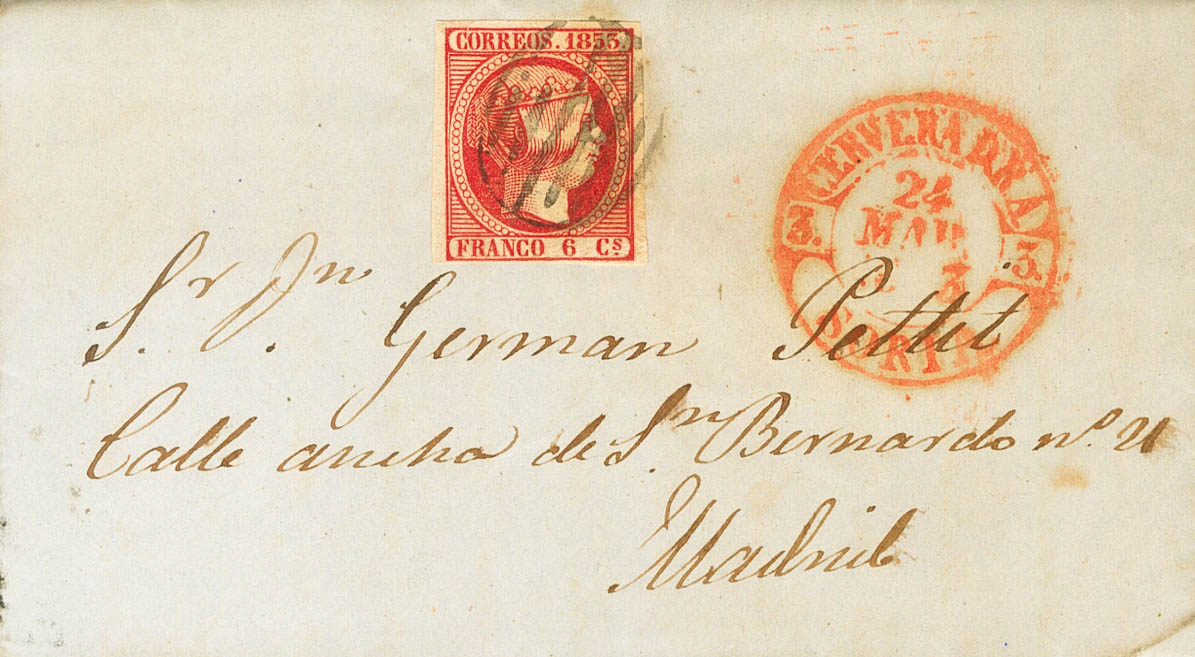 CORREOS. 1853.
FRANCO 6 Cs
CERVERA D.R.A.
3. 3.
24
MAR
3
SORIA
Sr. Dn. German Pettit
Calle ancha de Sn. Bernardo nº 21
Madrid